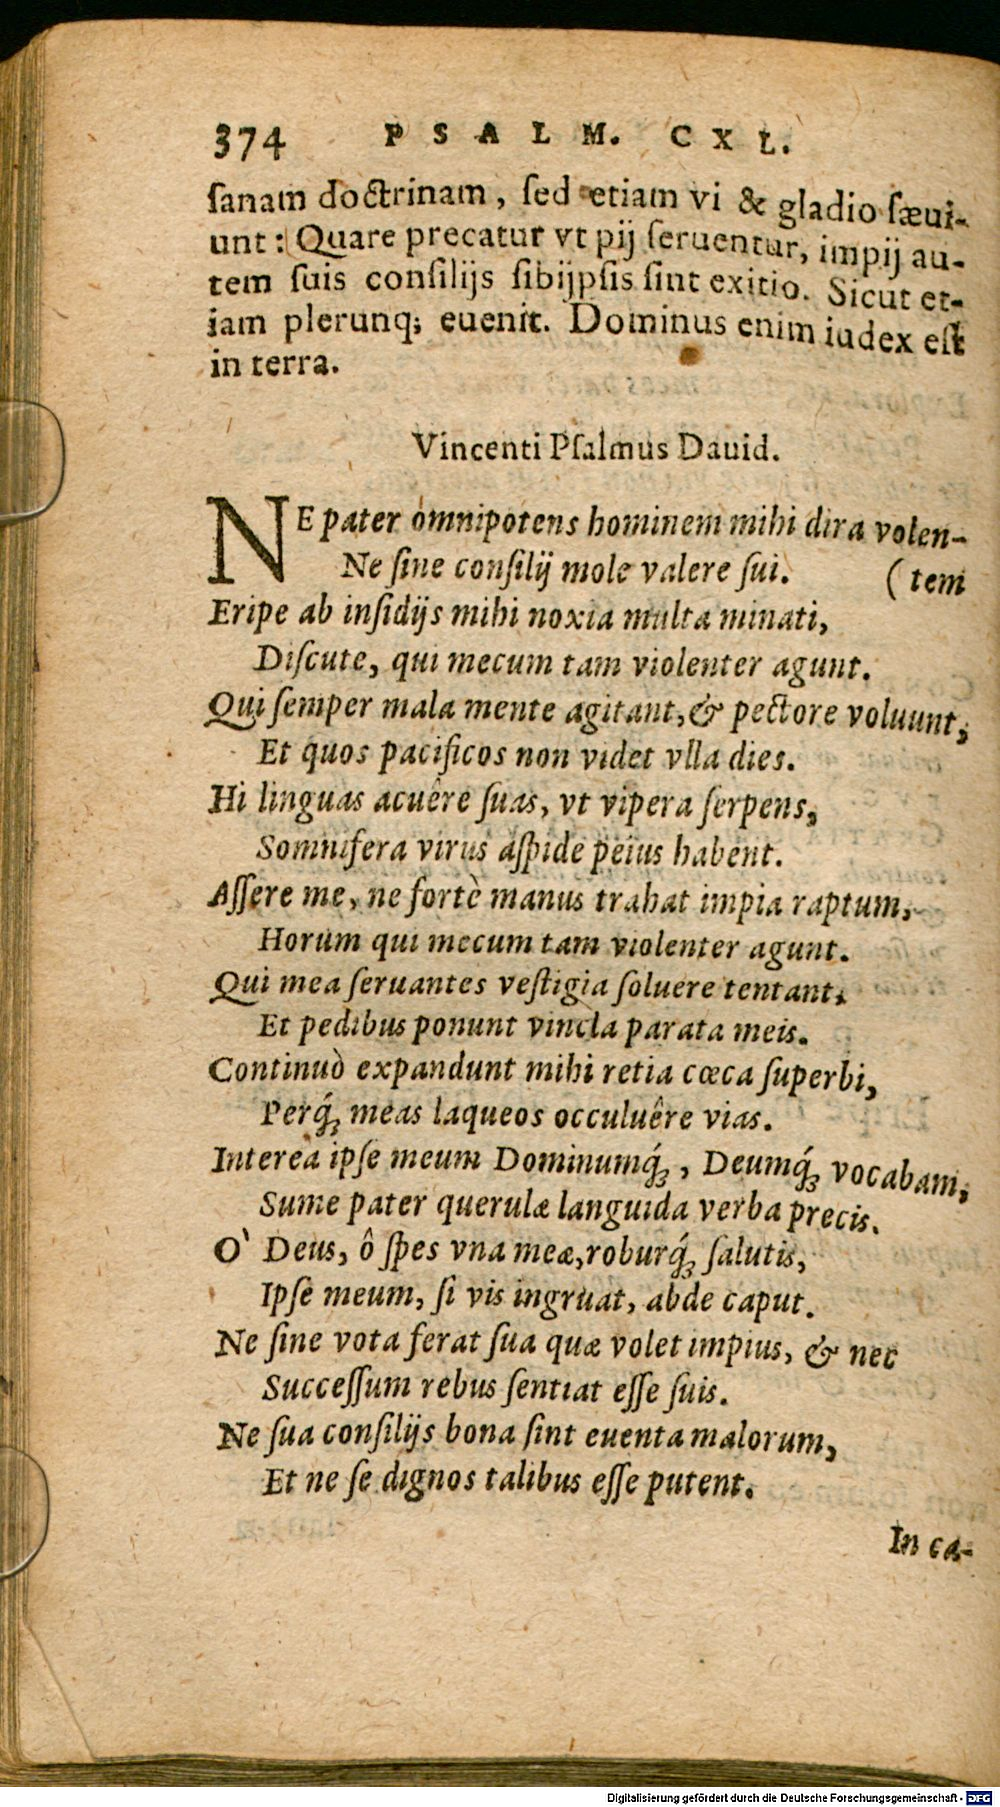 374 PSALM. CXL.
sanam doctrinam, sed etiam vi & gladio sæui-
unt: Quare precatur vt pij seruentur, impij au-
tem suis consilijs sibijpsis sint exitio. Sicut et-
iam plerunq; euenit. Dominus enim iudex est
in terra.
Vincenti Psalmus Dauid.
NE pater omnipotens hominem mihi dira volen-
Ne sine consilij mole valere sui. (tem
Eripe ab insidijs mihi noxia multa minati,
Discute, qui mecum tam violenter agunt.
Qui semper mala mente agitant, & pectore voluunt,
Et quos pacificos non videt vlla dies.
Hi linguas acuêre suas, vt vipera serpens,
Somnifera virus aspide peius habent.
Assere me, ne fortè manus trahat impia raptum,
Horum qui mecum tam violenter agunt.
Qui mea seruantes vestigia soluere tentant,
Et pedibus ponunt vincla parata meis.
Continuò expandunt mihi retia cœca superbi,
Perq́; meas laqueos occuluêre vias.
Interea ipse meum Dominumq́;, Deumq́; vocabam,
Sume pater querulæ languida verba precis.
O` Deus, ô spes vna meæ, roburq́; salutis,
Ipse meum, si vis ingruat, abde caput.
Ne sine vota ferat sua quæ volet impius, & nec
Successum rebus sentiat esse suis.
Ne sua consilijs bona sint euenta malorum,
Et ne se dignos talibus esse putent.
In ca-
Digitalisierung gefördert durch die Deutsche Forschungsgemeinschaft - DFG